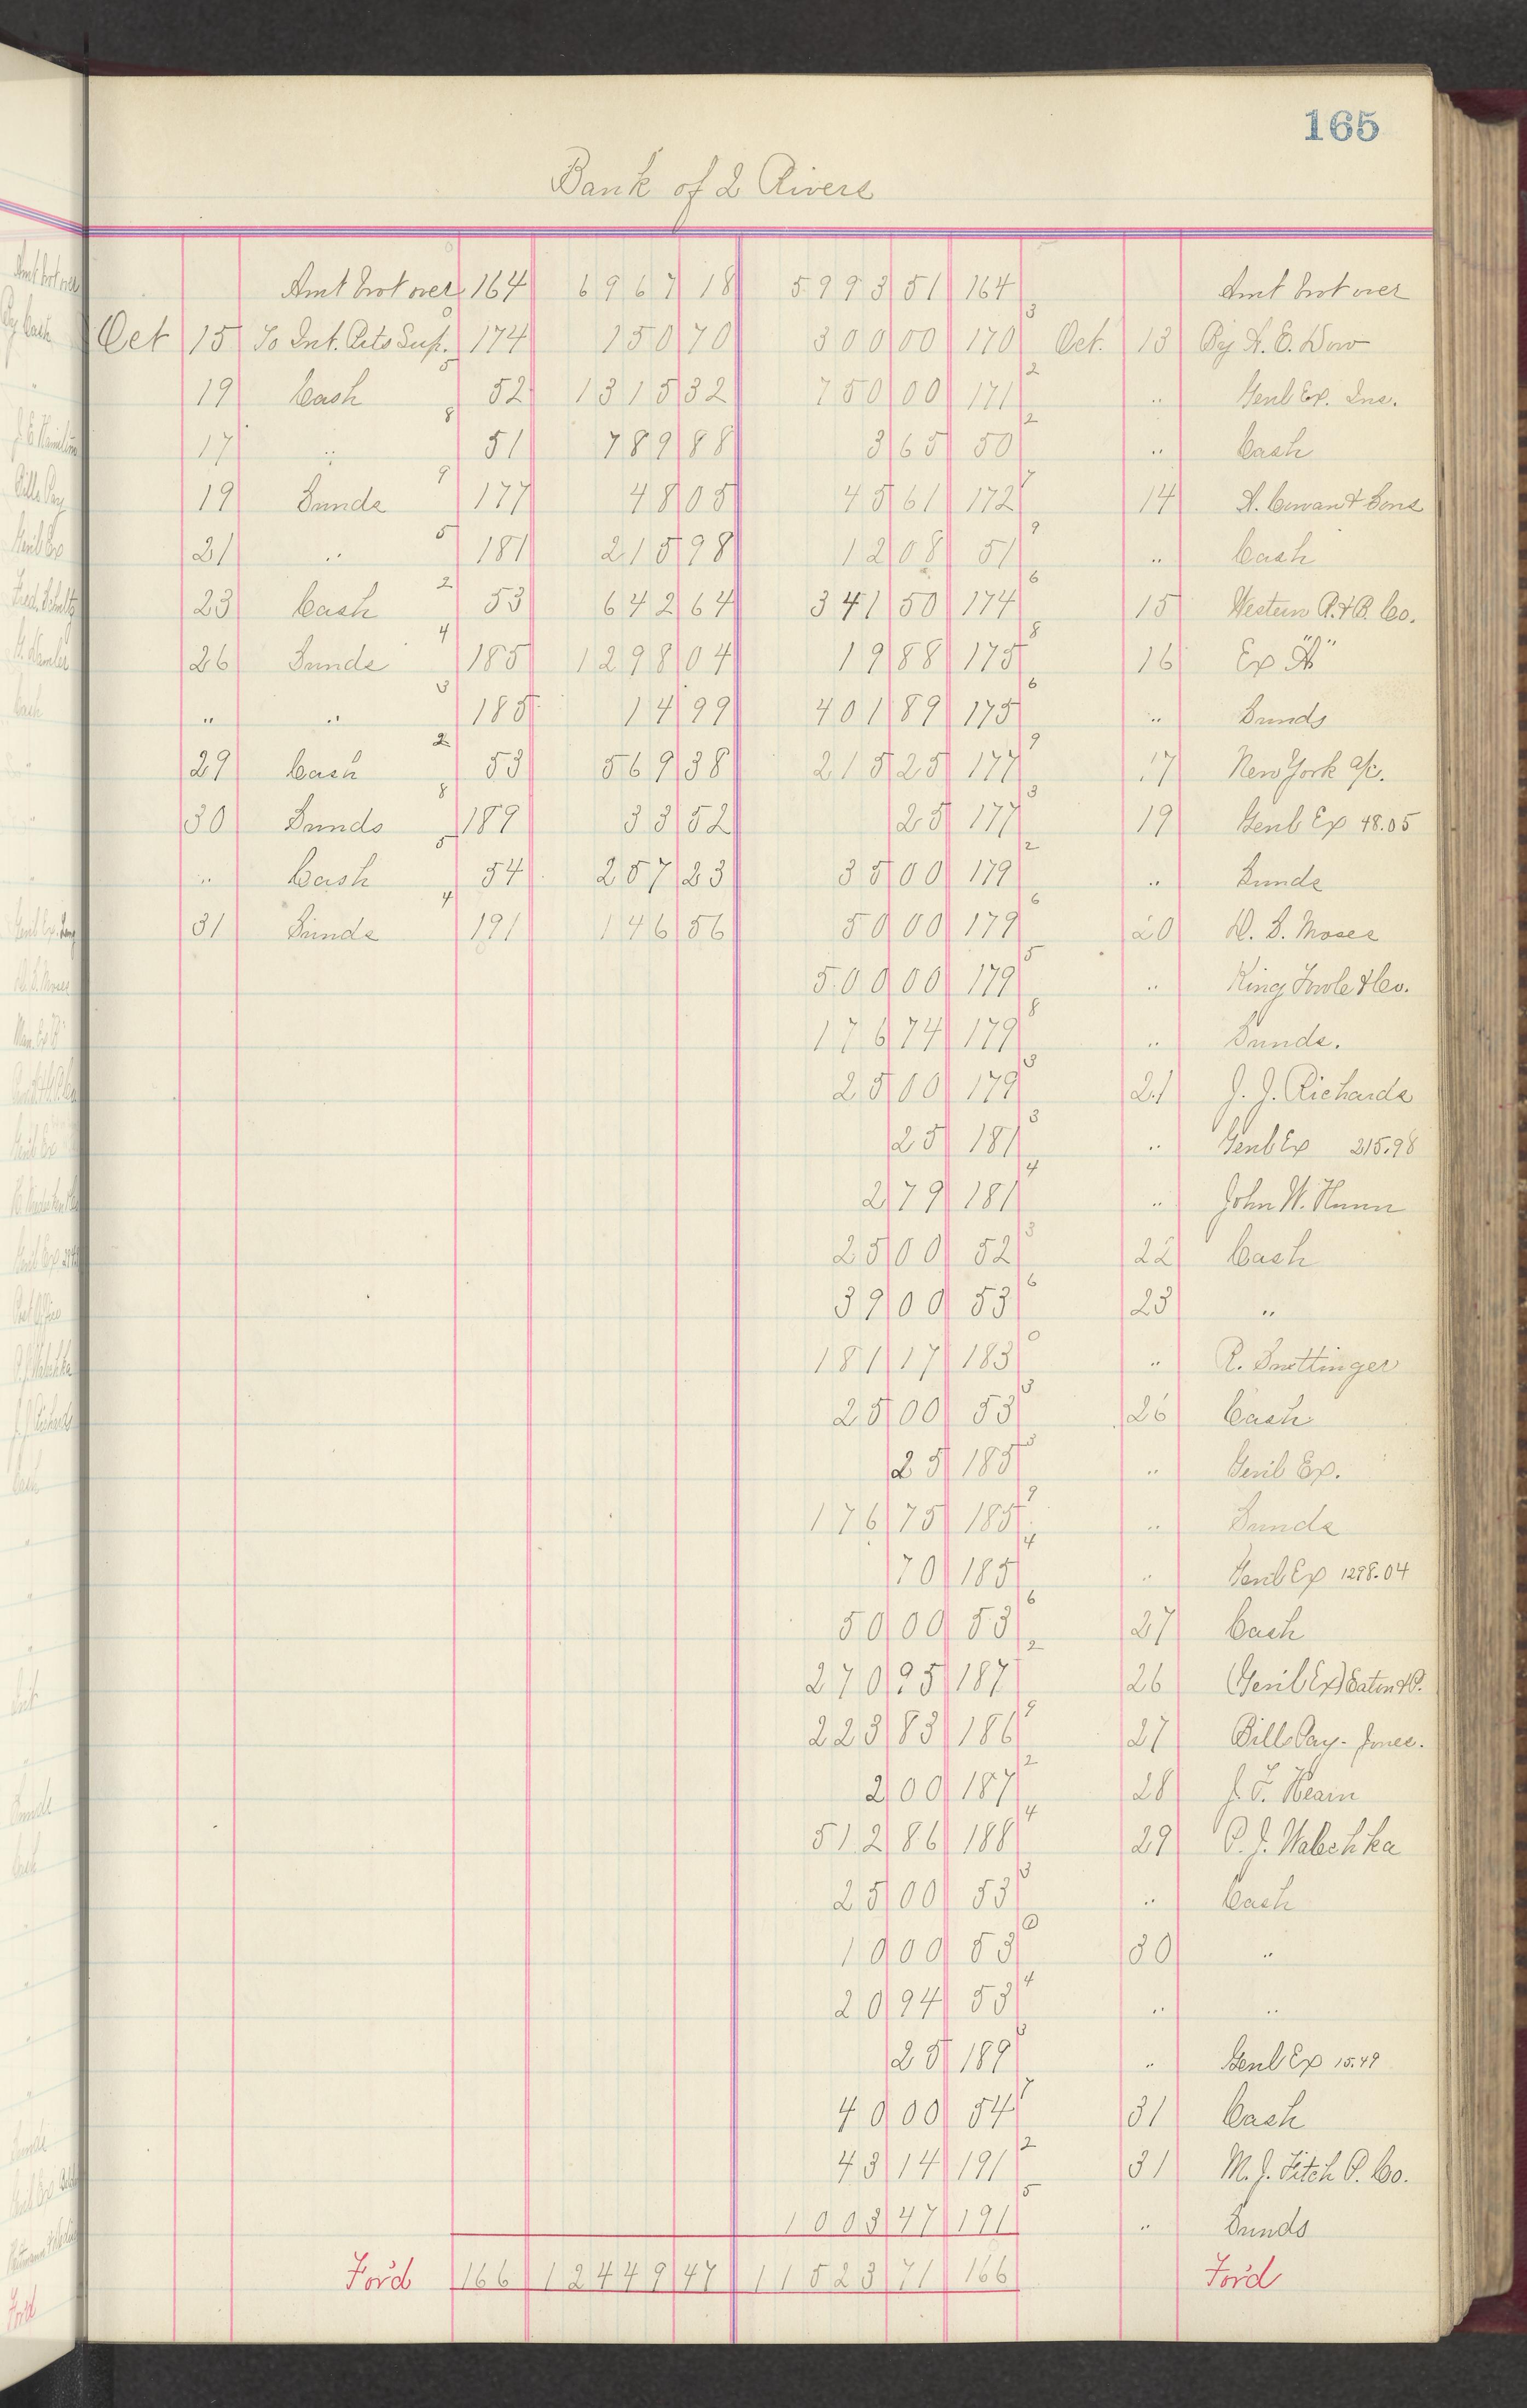 165
Bank of 2 Rivers
Amt brot over 164 6967 18 5993 51 164 Amt brot over
Oct 15 To Int. Acts Sup. 174 150 70 300 00 170 Oct. 13 By A. E. Dow
19 Cash 52 1315 32 750 00 171 " Genl Ex. Ins.
17 " 51 789 88 3 65 50 " Cash
19 Sunds 177 48 05 45 61 172 14 A. Cowan & Sons
21 " 181 215 98 12 08 51 " Cash
23 Cash 53 642 64 341 50 174 15 Western R. & B. Co.
26 Sunds 185 1298 04 19 88 175 16 Ex "A"
" " 185 14 99 401 89 175 " Sunds
29 Cash 53 569 38 215 25 177 17 New York a/c.
30 Sunds 189 33 52 25 177 19 Genl Ex 48.05
" Cash 54 257 23 35 00 179 " Sunds
31 Sunds 191 146 56 50 00 179 20 D. S. Moses
500 00 179 " King Fowle & Co.
176 74 179 " Sunds.
25 00 179 21 J. J. Richards
25 181 " Genl Ex 215.98
2 79 181 " John W. Hunn
25 00 52 22 Cash
39 00 53 23 "
181 17 183 " R. Suettinger
25 00 53 26 Cash
25 185 " Genl Ex.
176 75 185 " Sunds
70 185 " Genl Ex 1298.04
50 00 53 27 Cash
270 95 187 26 (Genl Ex) Eaton & P.
223 83 186 27 Bills Pay - Jones.
2 00 187 28 J. F. Hearn
512 86 188 29 P. J. Walschka
25 00 53 " Cash
10 00 53 30 "
20 94 53 " "
25 189 " Genl Ex 15.49
40 00 54 31 Cash
43 14 191 31 M. J. Fitch P. Co.
1003 47 191 " Sunds
For'd 166 12449 47 11523 71 166 For'd